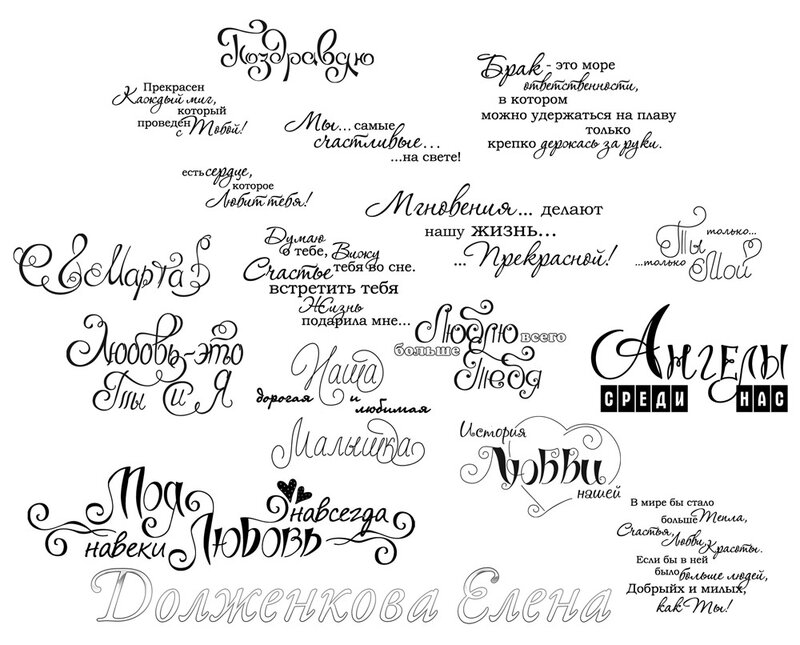 Поздравляю
Прекрасен
Каждый миг,
который
проведен
с Тобой!
Мы... самые
счастливые...
...на свете!
Брак - это море
ответственности,
в котором
можно удержаться на плаву
только
крепко держась за руки.
есть сердце,
которое
Любит тебя!
Мгновения... делают
нашу жизнь...
...Прекрасной!
только...
Ты
...только
Мой
С 8 Марта
Думаю
о тебе,
Вижу
тебя во сне.
Счастье
встретить тебя
Жизнь
подарила мне...
Любовь-это
Ты и Я
Люблю всего
больше
Тебя
Ангелы
среди нас
Наша
дорогая и
любимая
Малышка
История
Любви
нашей
Моя
навсегда
навеки Любовь
В мире бы стало
больше Тепла,
Счастья,
Любви,
Красоты.
Если бы в ней
было больше людей,
Добрыйх и милых,
как Ты!
Долженкова Елена